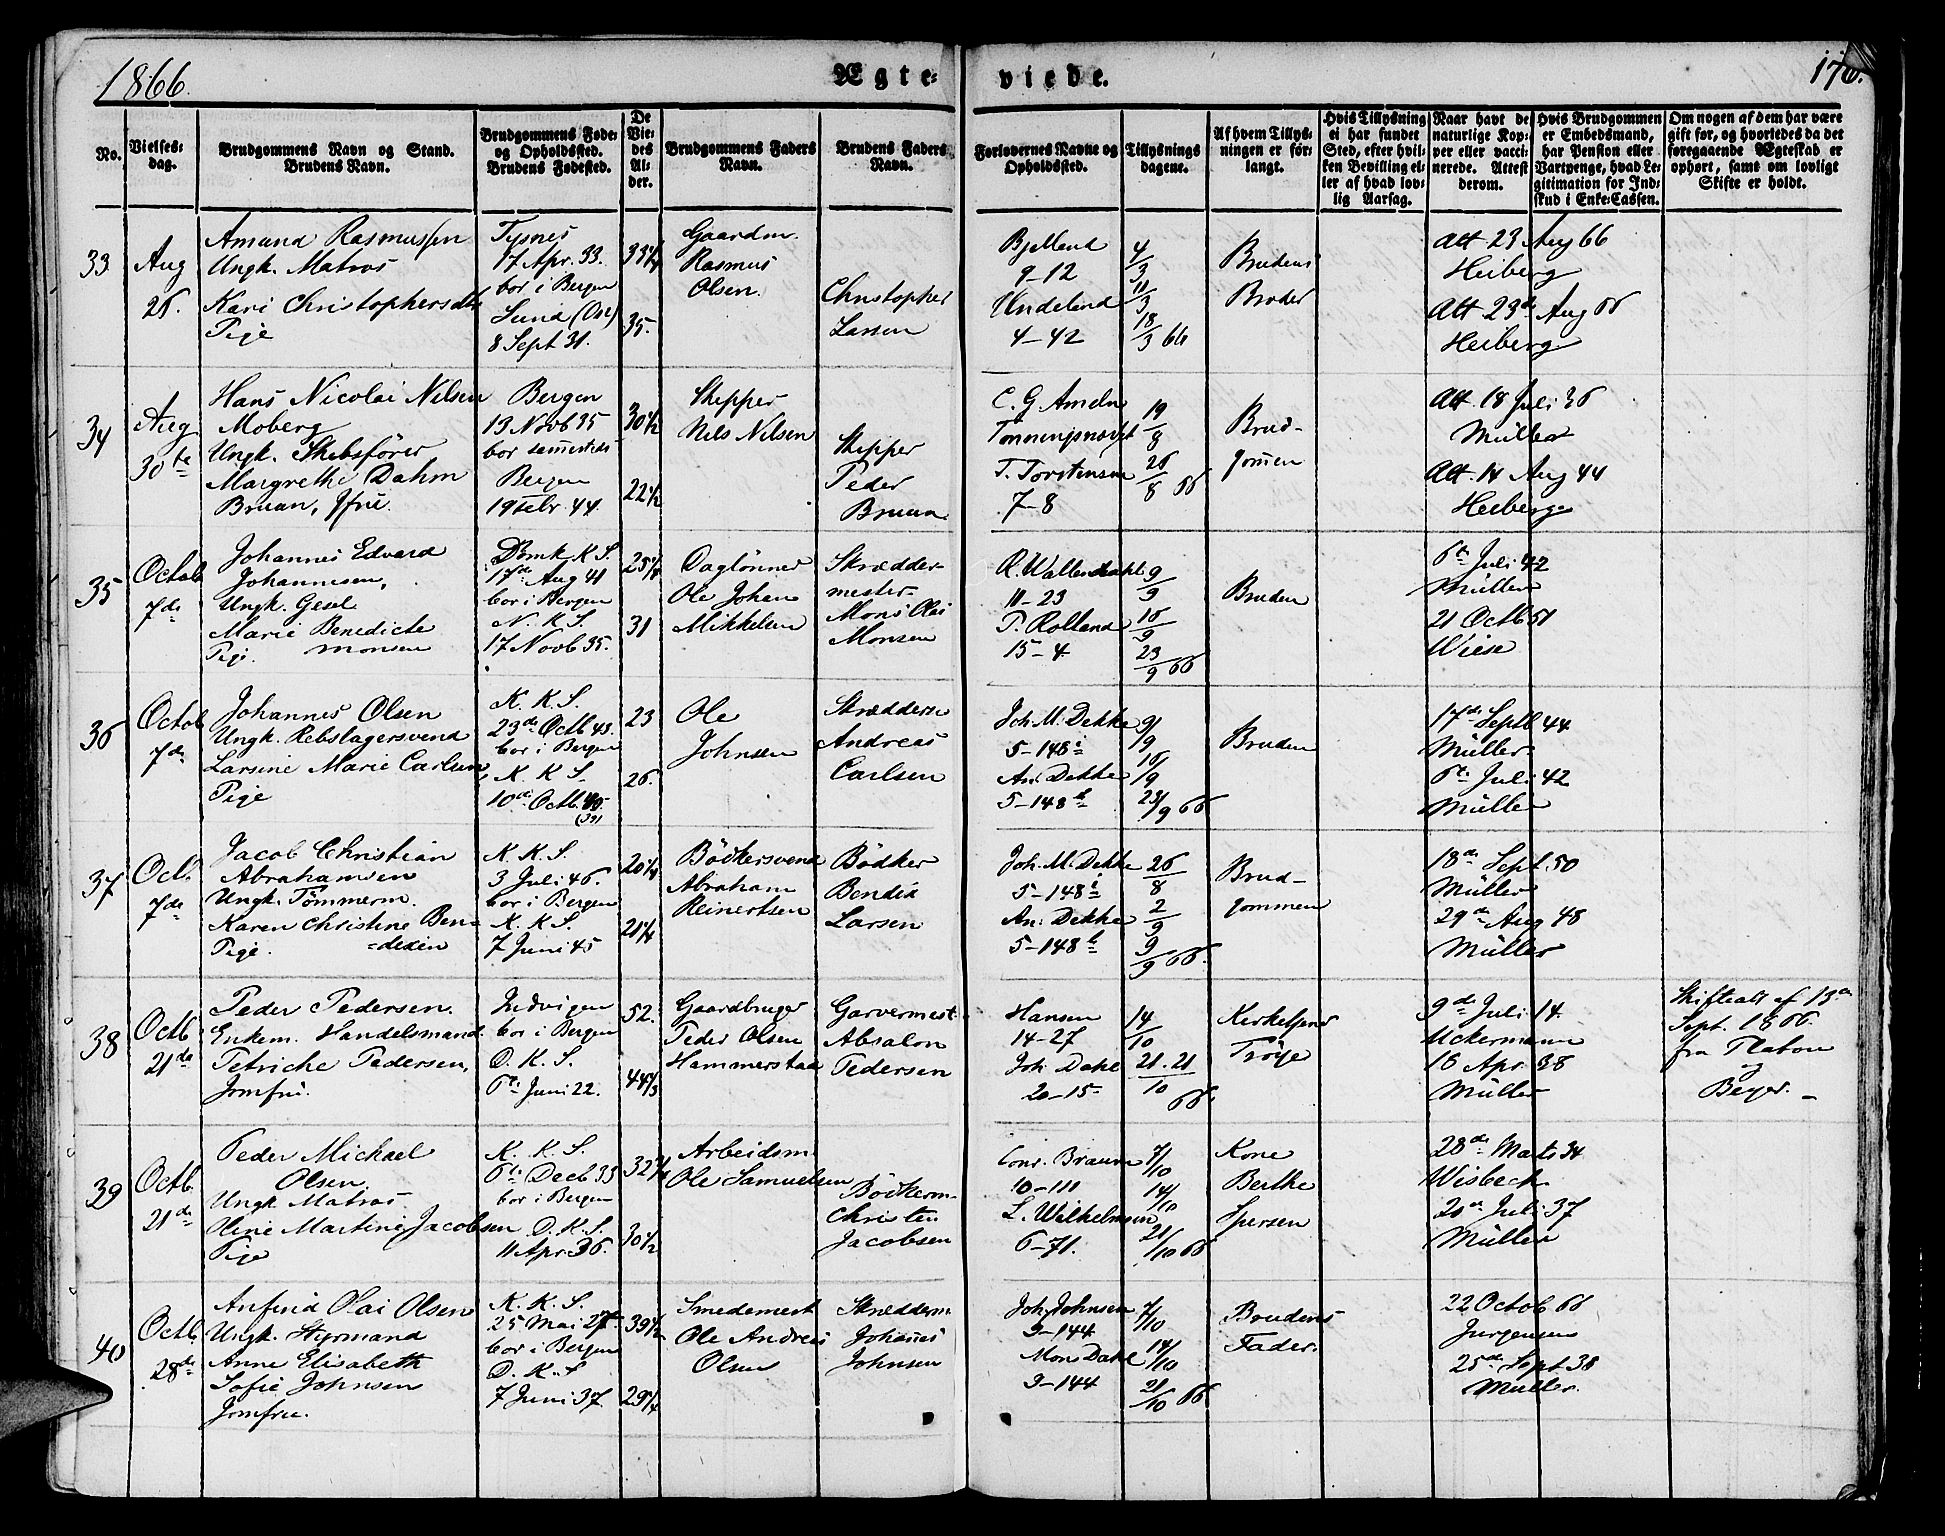 1866.
Ægte-
viede.
176.
No.
Vielses-
dag.
Brudgommens Navn og Stand.
Brudens Navn.
Brudgommens Føde-
og Opholdssted.
Brudens Fødested.
De
Vie-
des
Al-
der.
Brudgommens Faders
Navn.
Brudens Faders
Navn.
Forlovernes Navne og
Opholdssted.
Tillysnings
dagene.
Af hvem Tillys-
ningen er for-
langt.
Hvis Tillysning
ei har fundet
Sted, efter hvil-
ken Bevilling el-
ler af hvad lov-
lig Aarsag.
Naar havt de
naturlige Kop-
per eller vacci-
nerede. Attest
derom.
Hvis Brudgommen
er Embedsmand,
har Pension eller
Vartpenge, hvad Le-
gitimation for Ind-
skud i Enke-Cassen.
Om nogen af dem har være
gift før, og hvorledes da det
foregaaende Ægteskab er
ophørt, samt om lovligt
Skifte er holdt.
33
Aug
26.
Amund Rasmussen
Ungk. Matros
Kari Christophersdtr
Pige
Tysnes
17 Apr. 33.
bor i Bergen
Sund (Os)
8 Sept 31.
33 1/4
35.
Gaardm.
Rasmus
Olsen.
Christopher
Larsen
Bjelland
9-12
Undeland
4-42
4/3
11/3
18/3 66
Brudens
Broder
Att 23 Aug 66
Heiberg
Att 23de Aug 66
Heiberg
34
Aug
30te
Hans Nicolai Nilsen
Moberg
Ungk. Skibsfører
Margrethe Dahm
Bruun, Jfru.
Bergen
13 Novb 35
bor sammesteds
Bergen
19 Febr. 44.
30 1/2
22 1/2
Skipper
Nils Nilsen
Skipper
Peder
Bruun
C. G. Ameln
T. Torstensen
7-8
19/8
26/8 66
Brud-
gommen
Att. 18 Juli 36
Müller
Att. 14 Aug 44
Heiberg
35
Octob
7de
Johannes Edvard
Johannesen,
Ungk. Gesel
Marie Benedicte
Pige. Monsen
Domk. K. S.
17de Aug 41
bor i Bergen
N. K. S.
17 Novb 35.
25 1/4
31
Daglønner
Ole Johan
Mikkelsen
Skrædder-
mester
Mons Olai
Monsen
R. Wallendahl
11-23
P. Rolland
15-4
9/9
16/9
23/9 66
Bruden
6te Juli 42
Müller
21 Octb 51
Wiese
36
Octob
7de
Johannes Olsen
Ungk. Rebslagersvend
Larsine Marie Carlsen
Pige
K. K. S.
23de Octb 43.
bor i Bergen
K. K. S.
10de Octb. 40.
(39)
23
26.
Ole
Johnsen
Skrædders.
Andreas
Carlsen
Joh. M. Dekke
5-148i
An. Dekke
5-148
9/9
16/9
23/9 66
Bruden
17de Septb 44
Müller
6te Juli 42
Müller
37
Oct.
7de
Jacob Christian
Abrahamsen
Ungk. Tømmerm.
Karen Christine Ben-
Pige. =dixen
K. K. S.
3 Juli 46.
bor i Bergen
K. K. S.
7 Juni 45
20 1/4
21 1/4
Bødkersvend
Abraham
Reinertsen
Bødker
Bendix
Larsen
Joh. M. Dekke
5-148i
An. Dekke
5-148
26/8
2/9
9/9 66.
Brud-
gommen
18de Sept. 50
Müller
29de Aug 48
Müller
38
Octb
21de
Peder Pedersen.
Enkem. Handelsmand.
Petriche Pedersen,
Jomfru.
Indvigen
bor i Bergen
D. K. S.
6te Juni 22.
52.
44 1/3
Gaardbruger
Peder Olsen
Hammerstad
Garvermest.
Absalon
Pedersen
Hansen
14-27
Joh. Dahl
20-15
14/10
21. 21/10
66.
Kirketjener
Trøye
9de Juli 14.
Uckermann
18 Apr. 38
Müller
Skifteatt af 13de
Sept. 1866.
fra Platou
og
Beyer.
39
Octb.
21de
Peder Michael
Olsen.
Ungk Matros
Oline Martine Jacobsen
Pige
K. K. S.
6te Decb 33
bor i Bergen
D. K. S.
11 Apr. 36.
32 3/4
30 1/2
Arbeidsm.
Ole Samuelsen
Bødkerm.
Christen
Jacobsen
Conr. Bruun
10-111
L. Wilhelmsen
6-71.
7/10
14/10
21/10 66
Kone
Berthe
Iversen
28de Marts 34
Wisbech
20de Juli 37
Müller
40
Octb.
28de
Anfind Olai Olsen
Ungk. Styrmand
Anne Elisabeth
Sofie Johnsen
Jomfru.
K. K. S.
25 Mai 27
bor i Bergen
D. K. S
7 Juni 37
39 1/2
29 1/4
Smedemest
Ole Andreas
Olsen
Skrædderm
Johannes
Johnsen
Joh Johnsen
3-144
Mons Dahl
3-144
7/10
14/10
21/10 66
Brudens
Fader.
22 Octob 66
Jurgensen
25de Sept 38
Müller.